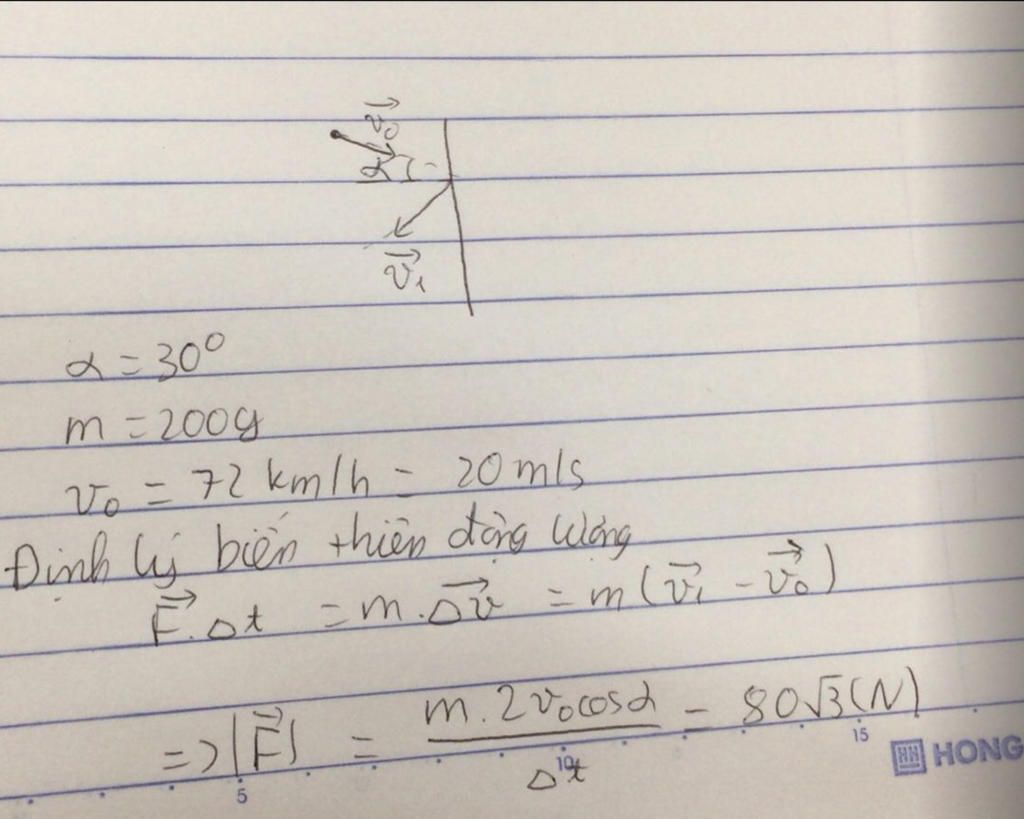 v₀⃗
α
v₁⃗
α = 30°
m = 200g
v₀ = 72 km/h = 20 m/s
Định lý biến thiên động lượng
F⃗.Δt = m.Δv⃗ = m(v₁⃗ - v₀⃗)
=> |F⃗| = m.2v₀cosα / Δt = 80√3(N)
5 10 15 HONG